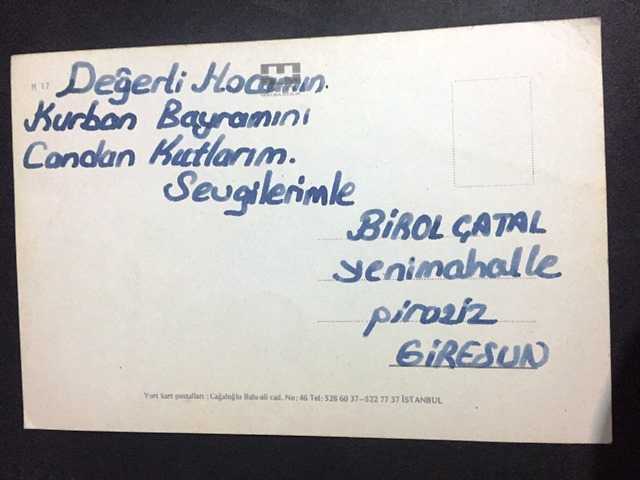 M 17
Değerli Hocamın
Kurban Bayramını
Candan Kutlarım.
Sevgilerimle
BİROL ÇATAL
Yenimahalle
piraziz
GİRESUN
Yurt kart postalları : Cağaloğlu Babıali cad. No: 46 Tel: 528 60 37-522 77 37 İSTANBUL